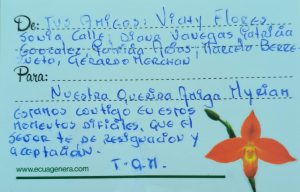 De: Tus Amigos: Vicky Flores,
Sonia Calle, Diana Vanegas, Patricia
Gonzalez, Patricia Rojas, Marcelo Berre
neto, Gerardo Merchan
Para:
Nuestra Querida Amiga Myriam
Estamos contigo en estos
momentos dificiles, que el
Señor te de resignación y
aceptación.
T.Q.M.
www.ecuagenera.com